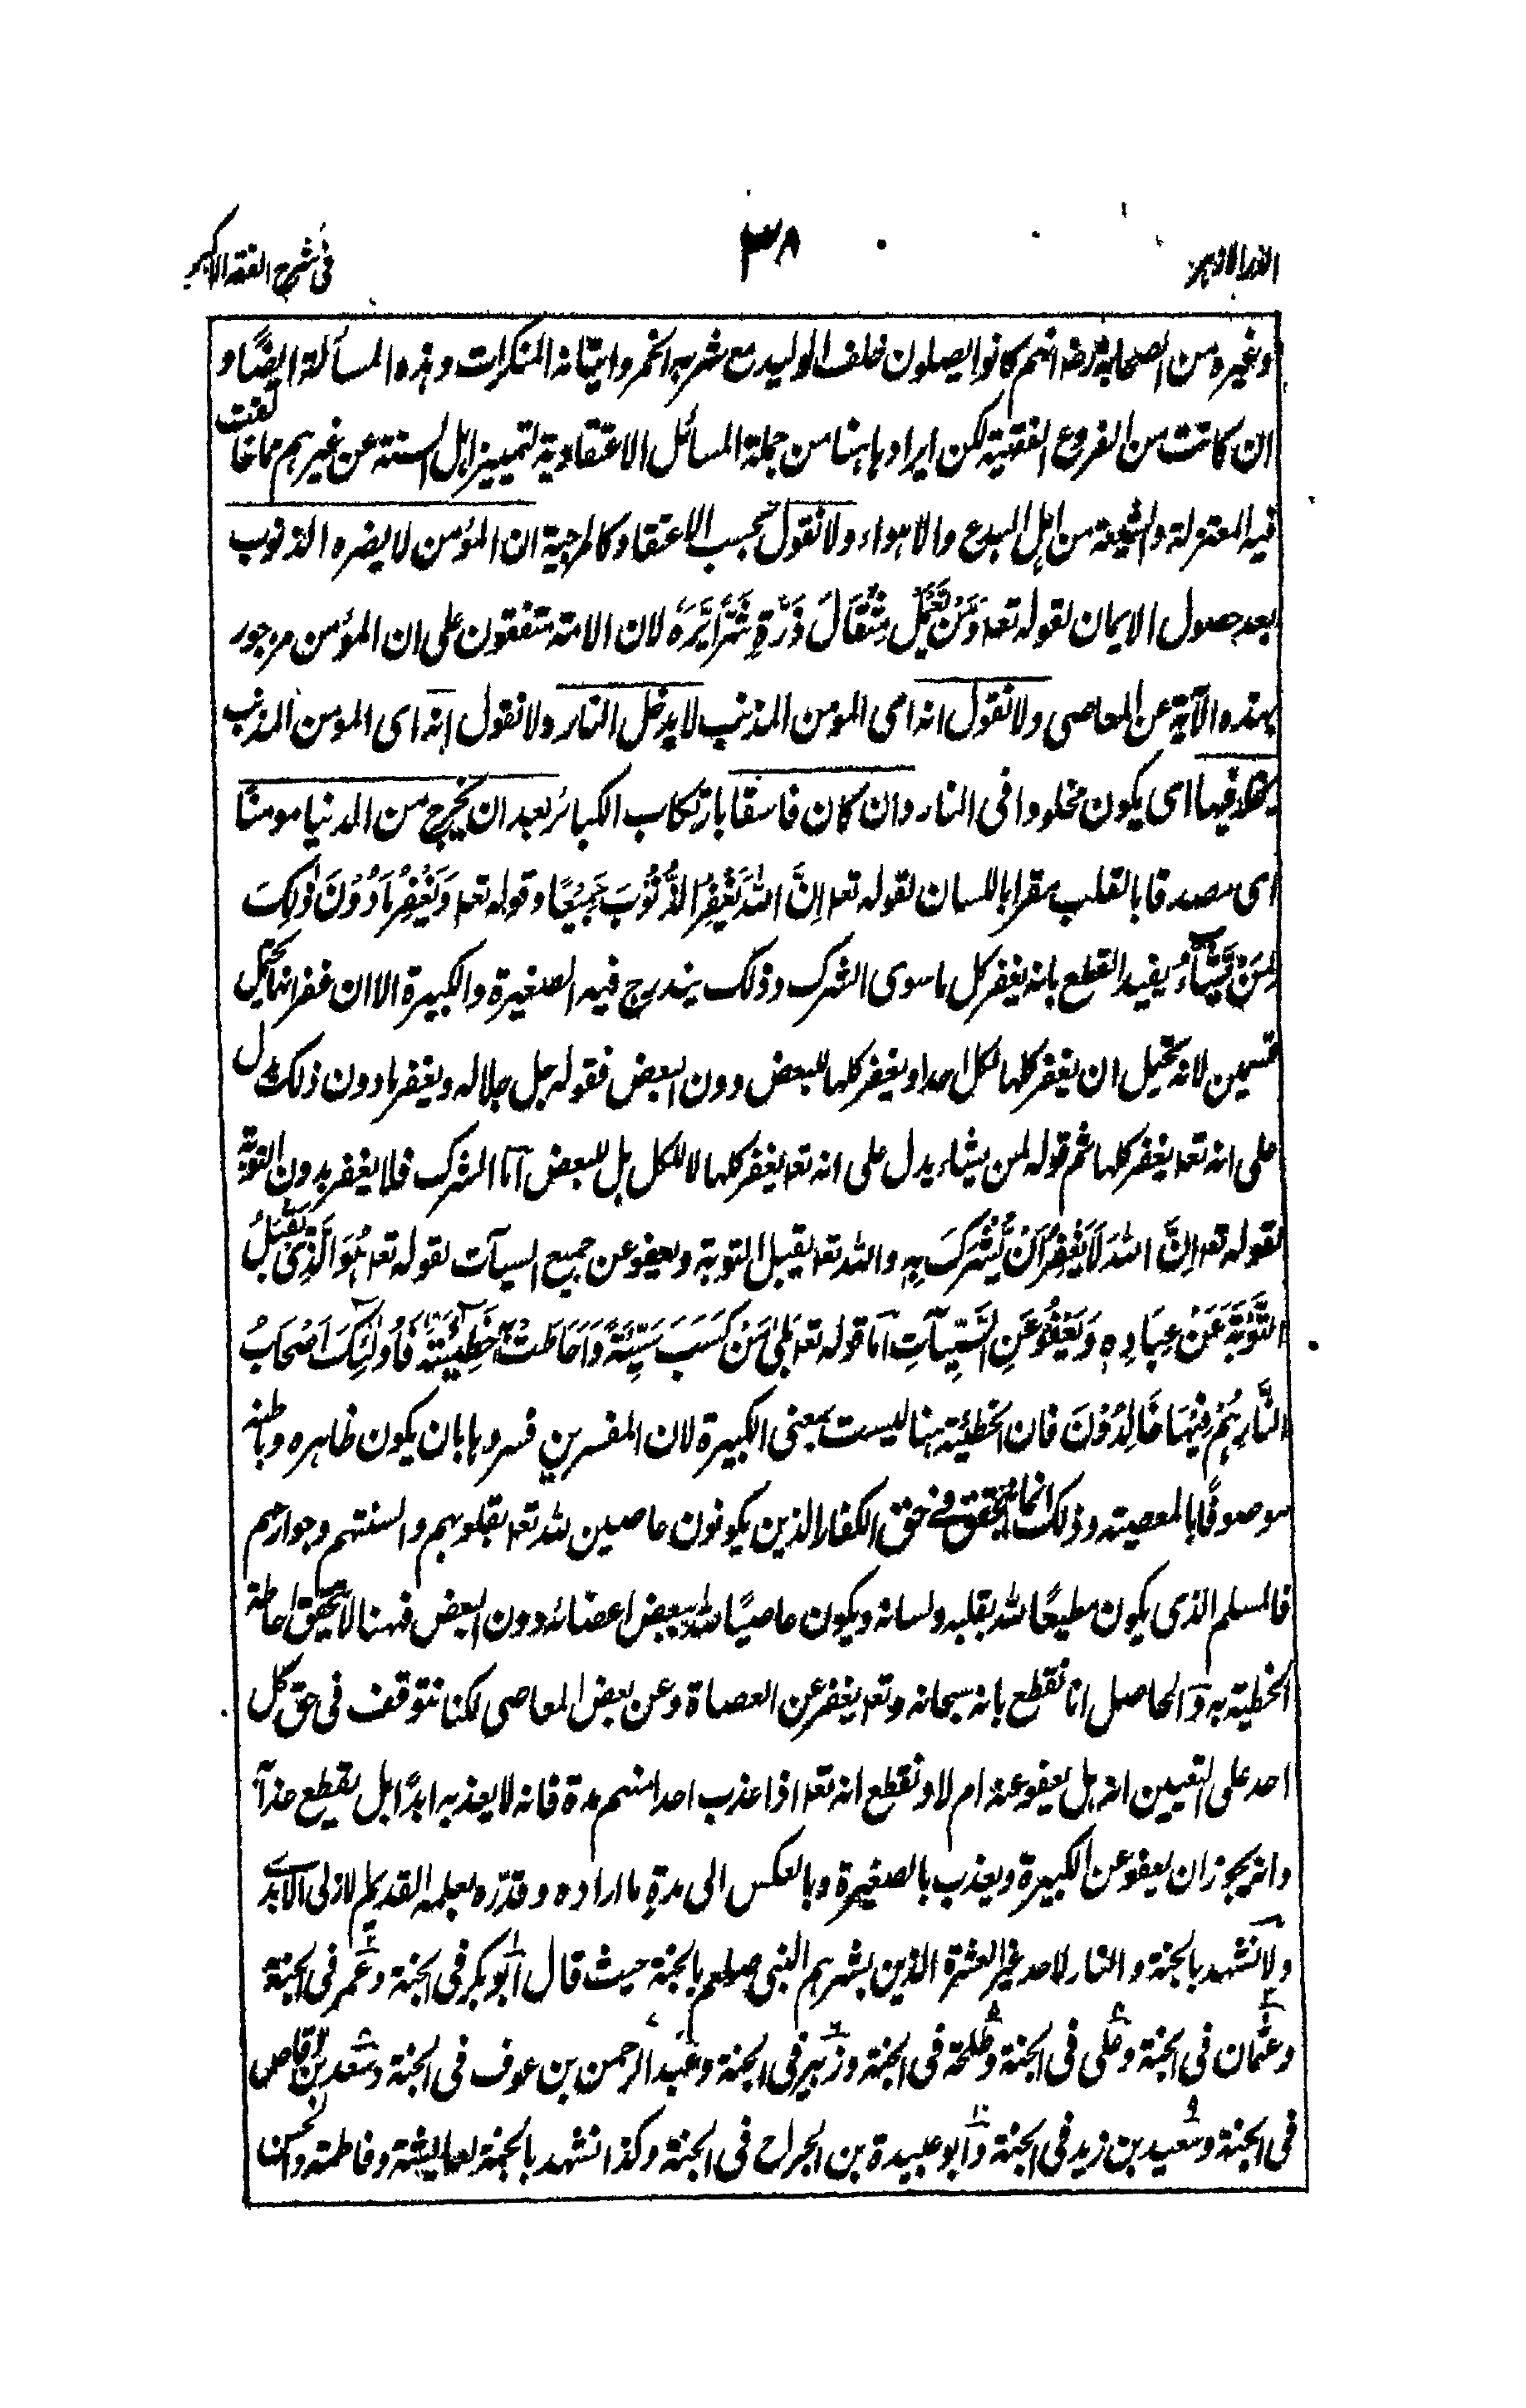 الدر الازهر
٣٨
في شرح الفقه الاكبر
وغيره من الصحابة رضـ انهم كانوا يصلون خلف الوليد مع شربه الخمر واتيانه المنكرات وهذه المسألة ايضًا و
ان كانت من الفروع الفقهية لكن ايرادها هنا من جملة المسائل الاعتقادية لتمييز اهل السنة عن غيرهم مما خالفت
فيه المعتزلة والشيعة من اهل البدع والاهواء ولا نقول بحسب الاعتقاد كالمرجية ان المؤمن لا يضره الذنوب
بعد حصول الايمان لقوله تعـ وَمَنْ يَّعْمَلْ مِثْقَالَ ذَرَّةٍ شَرًّا يَّرَهٗ لان الامة متفقون على ان المؤمن مزجور
بهذه الآية عن المعاصي ولا نقول انه اى المومن المذنب لا يدخل النار ولا نقول انه اى المومن المذنب
يخلد فيها اى يكون مخلودا فى النار وان كان فاسقا بارتكاب الكبائر بعد ان يخرج من الدنيا مومنًا
اى مصدقا بالقلب مقرا باللسان لقوله تعـ اِنَّ اللّٰهَ يَغْفِرُ الذُّنُوْبَ جَمِيْعًا وقوله تعـ وَيَغْفِرُ مَا دُوْنَ ذٰلِكَ
لِمَنْ يَّشَآءُ يفيد القطع بانه يغفر كل ما سوى الشرك وذلك يندرج فيه الصغيرة والكبيرة الا ان غفرانها يحتمل
قسمين لانه يحتمل ان يغفر كلها لكل احد او يغفر كلها للبعض دون البعض فقوله جل جلاله ويغفر ما دون ذلك يدل
على انه تعـ يغفر كلها ثم قوله لمن يشاء يدل على انه تعـ يغفر كلها لا للكل بل للبعض اما الشرك فلا يغفر بدون التوبة
لقوله تعـ اِنَّ اللّٰهَ لَا يَغْفِرُ اَنْ يُّشْرَكَ بِهٖ والله تعـ يقبل التوبة ويعفو عن جميع السيآت لقوله تعـ هُوَ الَّذِىْ يَقْبَلُ
التَّوْبَةَ عَنْ عِبَادِهٖ وَيَعْفُوْ عَنِ السَّيِّاٰتِ اما قوله تعـ بَلٰى مَنْ كَسَبَ سَيِّئَةً وَّاَحَاطَتْ بِهٖ خَطِيْٓئَتُهٗ فَاُولٰٓئِكَ اَصْحَابُ
النَّارِ هُمْ فِيْهَا خَالِدُوْنَ فان الخطيئة هنا ليست بمعنى الكبيرة لان المفسرين فسروها بان يكون ظاهره وباطنه
موصوفًا بالمعصية وذلك انما يتحقق فى حق الكفار الذين يكونون عاصين لله تعـ بقلوبهم والسنتهم وجوارحهم
فالمسلم الذى يكون مطيعًا لله بقلبه ولسانه ويكون عاصيًا لله ببعض اعضائه دون البعض فهنا لا يتحقق احاطة
الخطية به والحاصل انا نقطع بانه سبحانه وتعـ يغفر عن العصاة وعن بعض المعاصى لكنا نتوقف فى حق كل
احد على التعيين انه هل يعفو عنه ام لا ونقطع انه تعـ اذا عذب احدا منهم مدة فانه لا يعذبه ابدًا بل يقطع عذابه
وانه يجوز ان يعفو عن الكبيرة ويعذب بالصغيرة وبالعكس الى مدةٍ ما اراده وقدّره بعلمه القديم الازلى الابدى
ولا نشهد بالجنة والنار لاحد غير العشرة الذين بشرهم النبى صلعم بالجنة حيث قال ابو بكر فى الجنة وعمر فى الجنة
وعثمان فى الجنة وعلى فى الجنة وطلحة فى الجنة وزبير فى الجنة وعبد الرحمن بن عوف فى الجنة وسعد بن ابى وقاص
فى الجنة وسعيد بن زيد فى الجنة وابو عبيدة بن الجراح فى الجنة وكذا نشهد بالجنة لعايشة وفاطمة والحسن